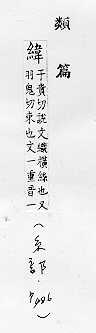 類篇
緯
于貴切說文織橫絲也又
羽鬼切束也文一重音一
(糸部・